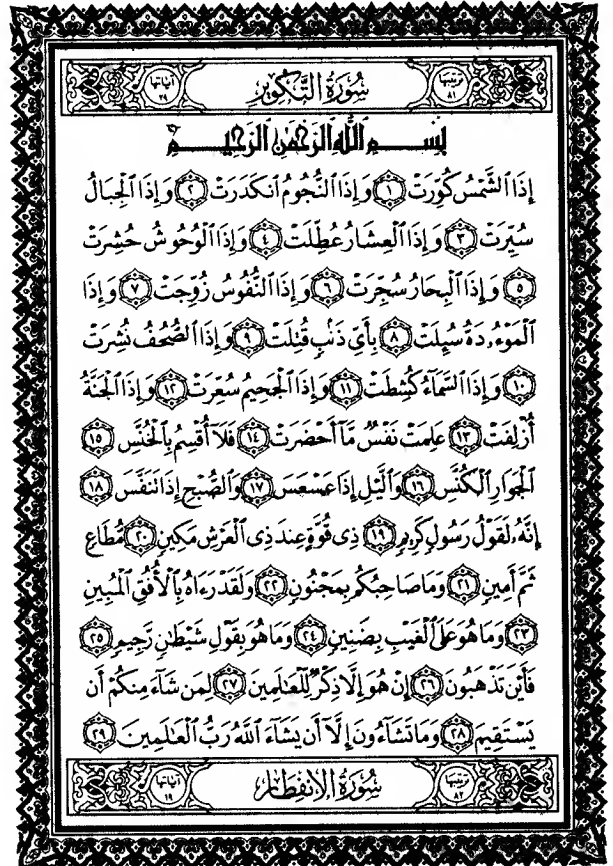 ترتيبها ٨١ سُورَةُ التَّكْوِيرِ آياتها ٢٩
بِسْمِ اللَّهِ الرَّحْمَٰنِ الرَّحِيمِ
إِذَا ٱلشَّمْسُ كُوِّرَتْ ١ وَإِذَا ٱلنُّجُومُ ٱنكَدَرَتْ ٢ وَإِذَا ٱلْجِبَالُ
سُيِّرَتْ ٣ وَإِذَا ٱلْعِشَارُ عُطِّلَتْ ٤ وَإِذَا ٱلْوُحُوشُ حُشِرَتْ
٥ وَإِذَا ٱلْبِحَارُ سُجِّرَتْ ٦ وَإِذَا ٱلنُّفُوسُ زُوِّجَتْ ٧ وَإِذَا
ٱلْمَوْءُۥدَةُ سُئِلَتْ ٨ بِأَىِّ ذَنۢبٍ قُتِلَتْ ٩ وَإِذَا ٱلصُّحُفُ نُشِرَتْ
١٠ وَإِذَا ٱلسَّمَآءُ كُشِطَتْ ١١ وَإِذَا ٱلْجَحِيمُ سُعِّرَتْ ١٢ وَإِذَا ٱلْجَنَّةُ
أُزْلِفَتْ ١٣ عَلِمَتْ نَفْسٌ مَّآ أَحْضَرَتْ ١٤ فَلَآ أُقْسِمُ بِٱلْخُنَّسِ ١٥
ٱلْجَوَارِ ٱلْكُنَّسِ ١٦ وَٱلَّيْلِ إِذَا عَسْعَسَ ١٧ وَٱلصُّبْحِ إِذَا تَنَفَّسَ ١٨
إِنَّهُۥ لَقَوْلُ رَسُولٍ كَرِيمٍ ١٩ ذِى قُوَّةٍ عِندَ ذِى ٱلْعَرْشِ مَكِينٍ ٢٠ مُّطَاعٍ
ثَمَّ أَمِينٍ ٢١ وَمَا صَاحِبُكُم بِمَجْنُونٍ ٢٢ وَلَقَدْ رَءَاهُ بِٱلْأُفُقِ ٱلْمُبِينِ
٢٣ وَمَا هُوَ عَلَى ٱلْغَيْبِ بِضَنِينٍ ٢٤ وَمَا هُوَ بِقَوْلِ شَيْطَٰنٍ رَّجِيمٍ ٢٥
فَأَيْنَ تَذْهَبُونَ ٢٦ إِنْ هُوَ إِلَّا ذِكْرٌ لِّلْعَٰلَمِينَ ٢٧ لِمَن شَآءَ مِنكُمْ أَن
يَسْتَقِيمَ ٢٨ وَمَا تَشَآءُونَ إِلَّآ أَن يَشَآءَ ٱللَّهُ رَبُّ ٱلْعَٰلَمِينَ ٢٩
ترتيبها ٨٢ سُورَةُ الانفِطَارِ آياتها ١٩